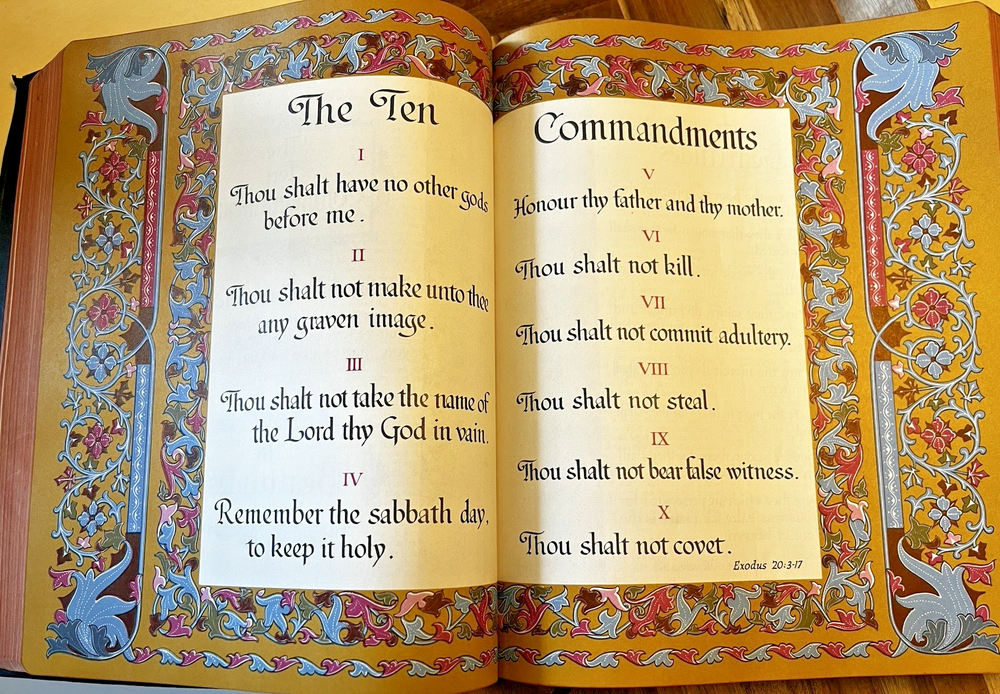 The Ten
I
Thou shalt have no other gods
before me.
II
Thou shalt not make unto thee
any graven image.
III
Thou shalt not take the name of
the Lord thy God in vain.
IV
Remember the sabbath day,
to keep it holy.
Commandments
V
Honour thy father and thy mother.
VI
Thou shalt not kill.
VII
Thou shalt not commit adultery.
VIII
Thou shalt not steal.
IX
Thou shalt not bear false witness.
X
Thou shalt not covet.
Exodus 20:3-17